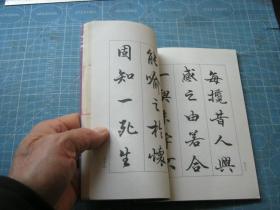 每攬昔人興
感之由若合
能喻之於懷
固知一死生